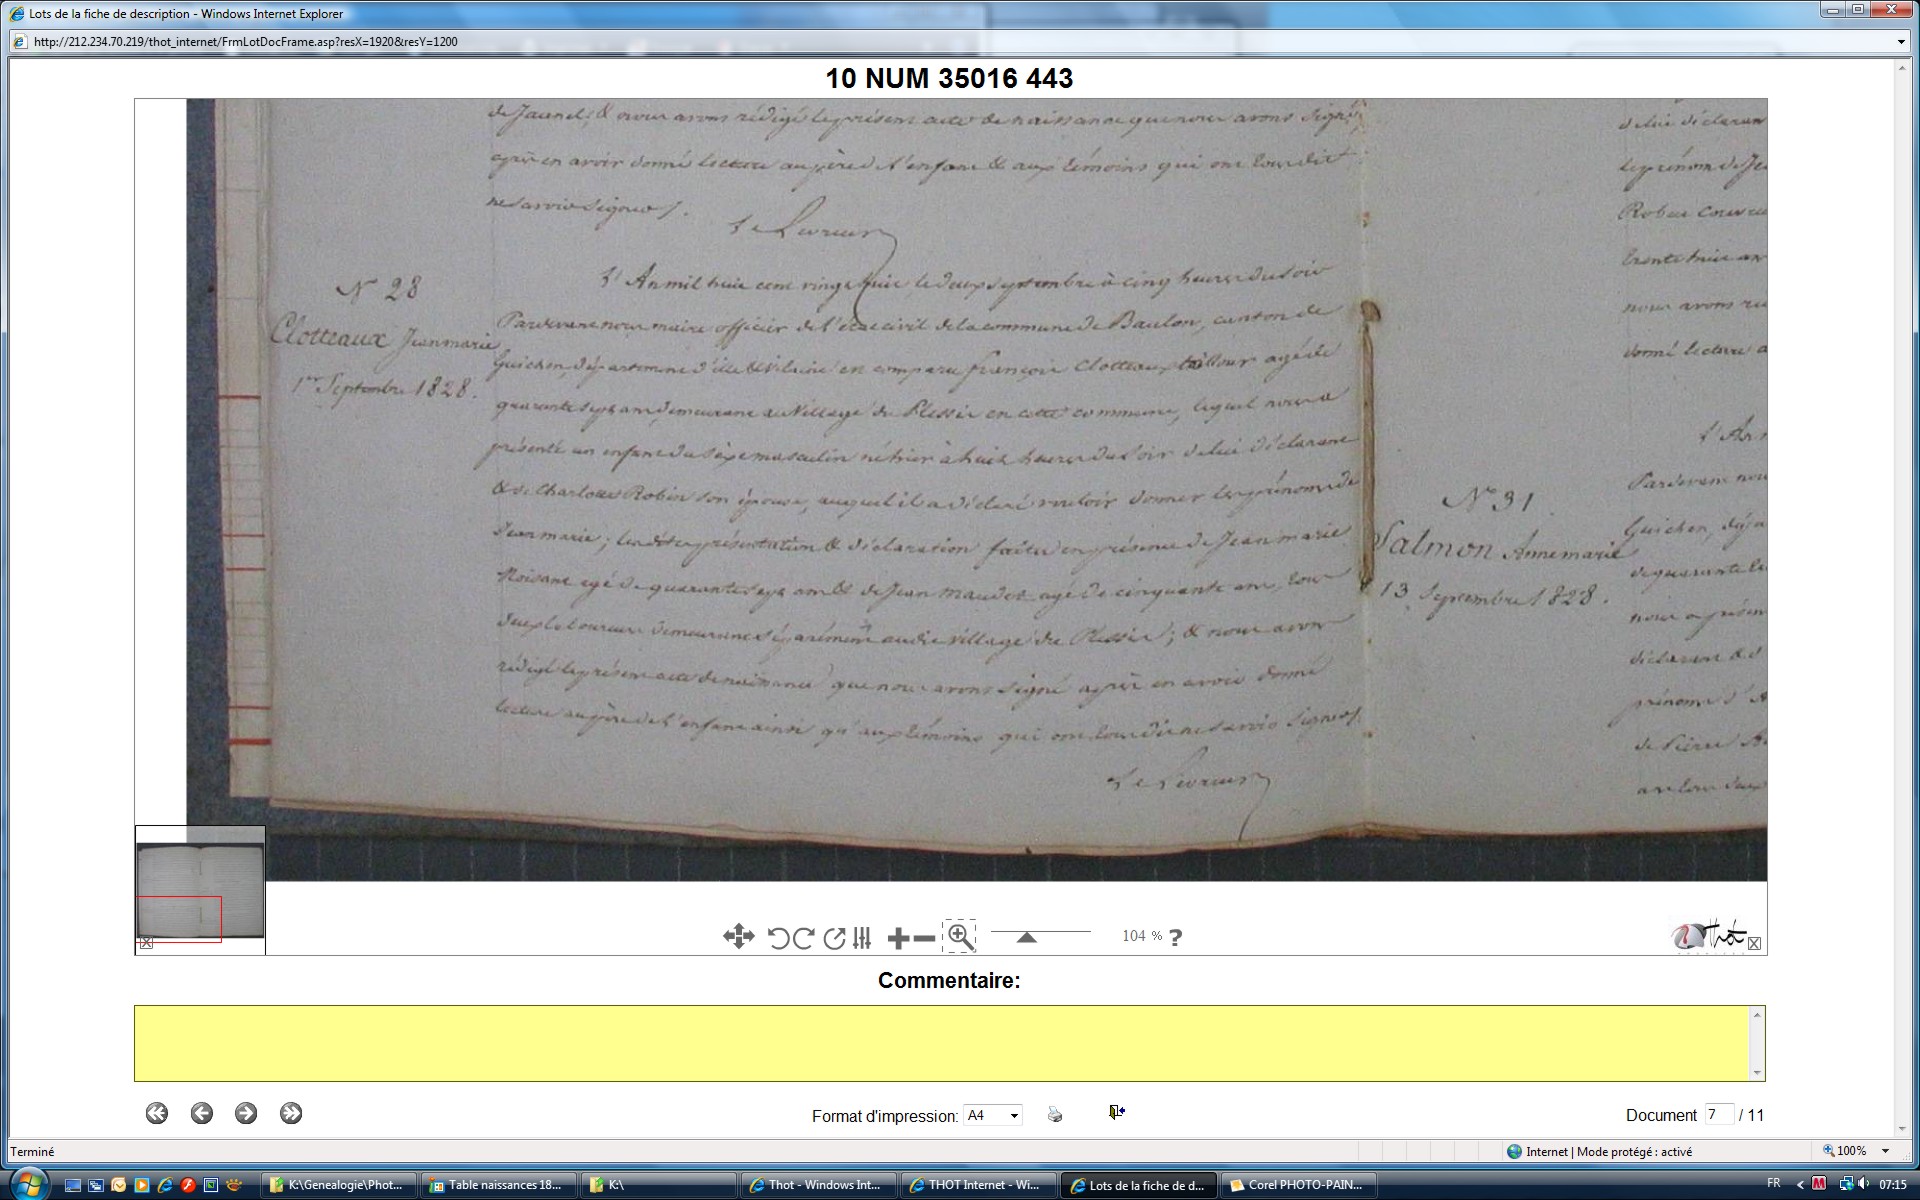 Lots de la fiche de description - Windows Internet Explorer
http://212.234.70.219/thot_internet/FrmLotDocFrame.asp?resX=1920&resY=1200
10 NUM 35016 443
& nous avons rédigé le présent acte de naissance que nous avons signé
après en avoir donné lecture au père de l'enfant & aux témoins qui ont tous dit
ne savoir signer /.
N° 28
Clotteaux Jean marie
1er Septembre 1828.
L'An mil huit cent vingt huit, le deux septembre à cinq heures du soir
Pardevant nous maire officier de l'état civil de la commune de Baulon, canton de
Guichen, département d'ille & vilaine en comparu françois Clotteaux tailleur agé de
quarante sept ans, demeurant au Village du Plessis en cette commune, lequel nous a
présenté un enfant du sèxe masculin né hier à huit heures du soir de lui déclarant
& de Charlotte Robin son épouse, auquel il a déclaré vouloir donner les prénoms de
Jean marie; les dites présentation & déclaration faites en présence de Jean marie
agé de quarante sept ans & de Jean maudet agé de cinquante ans, tous
deux laboureurs demeurant séparément audit village du Plessis; & nous avons
rédigé le présent acte de naissance que nous avons signé après en avoir donné
lecture au père de l'enfant ainsi qu'aux témoins qui ont tous dit ne savoir signer /.
de lui déclaran
le prénom de Je
trente huit an
nous avons ré
donné lecture a
N° 31
Salmon Anne marie
13 Septembre 1828.
L'An
Pardevant nou
Guichen, dépa
de quarante
nous a présen
déclarant & d
prénoms d'A
de Pierre
104 % ?
Thot
Commentaire:
Format d'impression: A4
Document 7 / 11
Terminé
Internet | Mode protégé : activé
100%
K:\Genealogie\Phot...
Table naissances 18...
K:\
Thot - Windows Int...
THOT Internet - Wi...
Lots de la fiche de d...
Corel PHOTO-PAIN...
FR
07:15